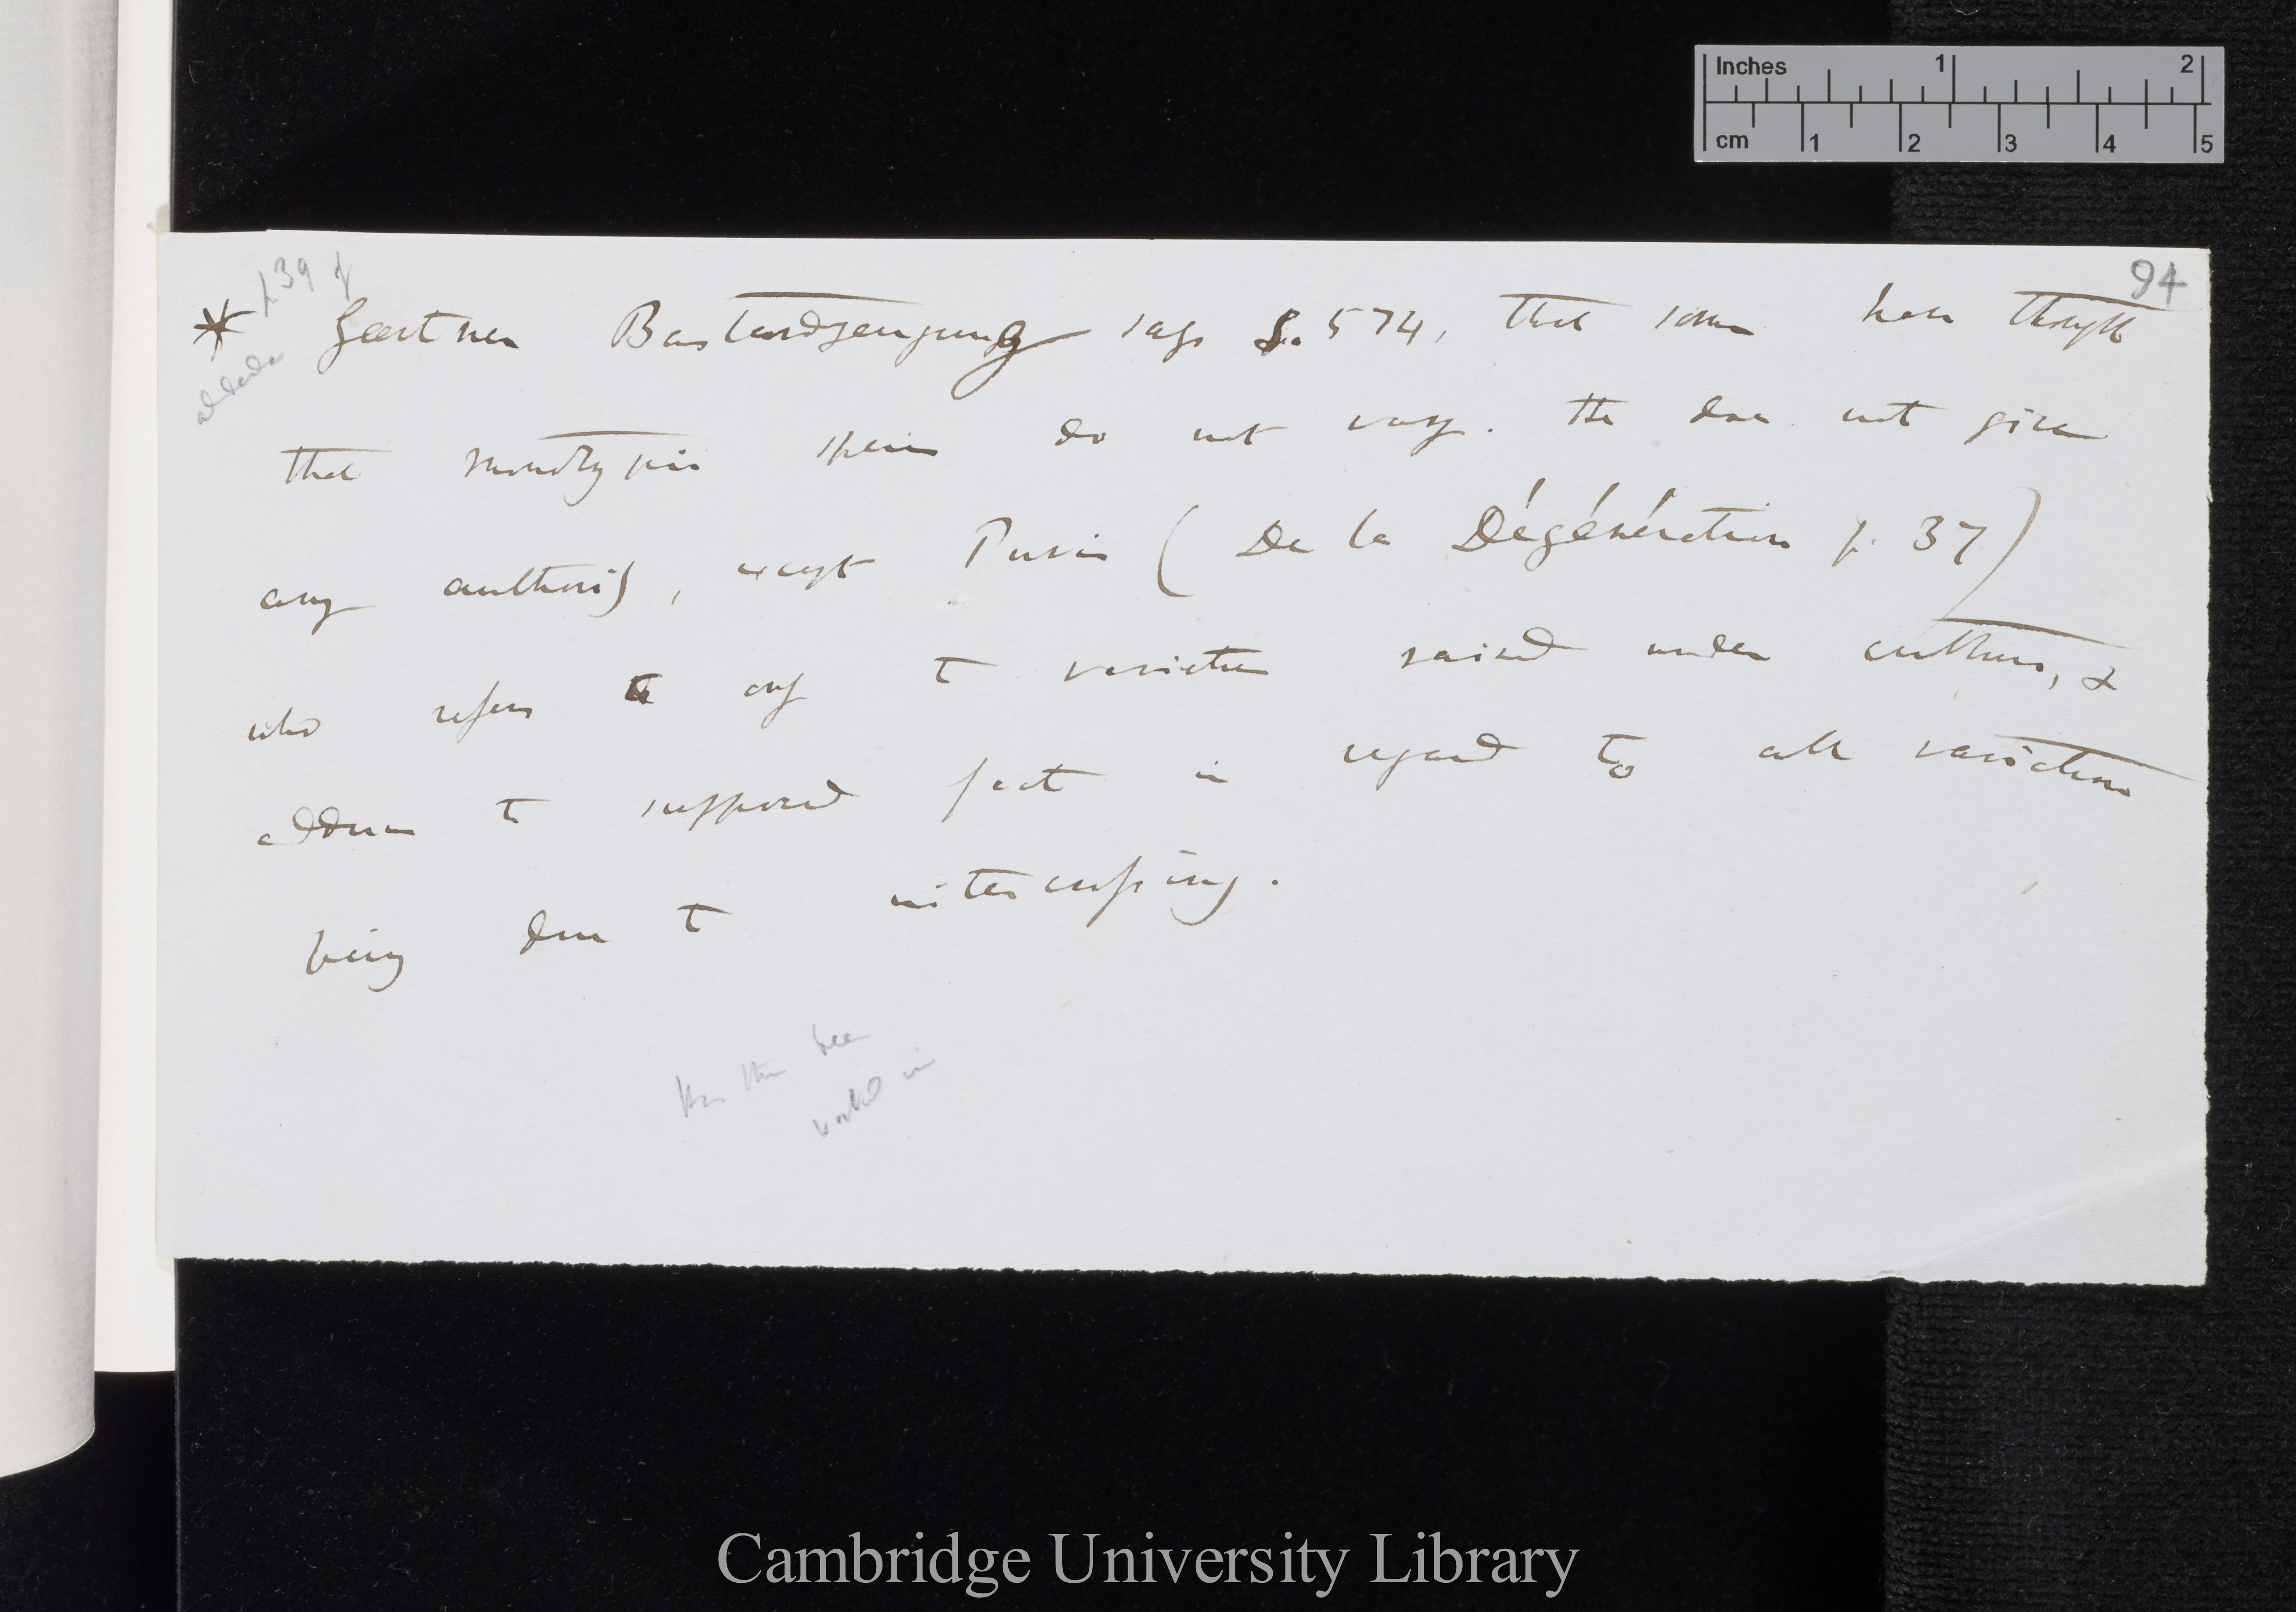 Inches 1 2
cm 1 2 3 4 5
94
* Gærtner Bastardzeugung says S. 574, that some have thought
added
that monotypic species do not vary. He does not give
any authority, except Puvis (De la Dégénération p. 37)
who refers to only to varieties raised under culture, &
adduces the supposed fact in regard to all varieties
being due to intercrossing.
Has this been
worked in
Cambridge University Library